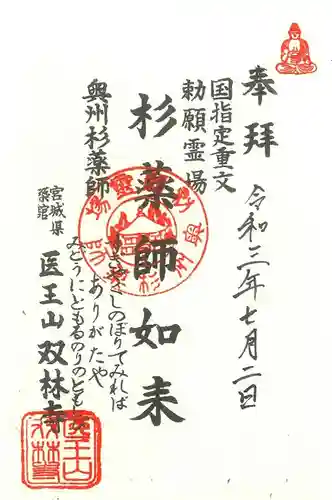 奉拝
令和三年七月二日
国指定重文
勅願霊場
杉薬師如来
奥州杉薬師
のぼりてみれば
ありがたや
みどうにともるのりのともしび
宮城県
築館
医王山双林寺